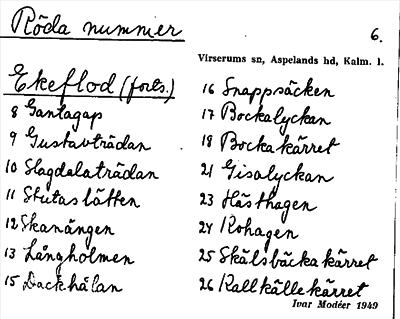 Röda nummier
6.
Virserums sn, Aspelands hd, Kalm. l.
Ekeflod (forts.)
8 Gantagap
9 Gustavträdan
10 Slagdalaträdan
11 Stutaslätten
12 Skanängen
13 Långholmen
15 Dackhålan
16 Snappsäcken
17 Bockalyckan
18 Bockakärret
21 Gisalyckan
23 Hästhagen
24 Kohagen
25 Skälsbäckakärret
26 Kallkällekärret
Ivar Modéer 1949